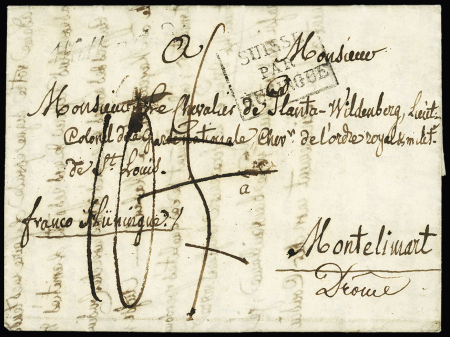 a Monsieur
SUISSE
PAR
HUNINGUE
Monsieur Le Chevalier de Planta-Wildenberg, Lieut:
Colonel de la Garde natinale Chevr de l'ordre royal & milit:
de St. Louis.
franco Hüningue.
a
Montelimart
Drome